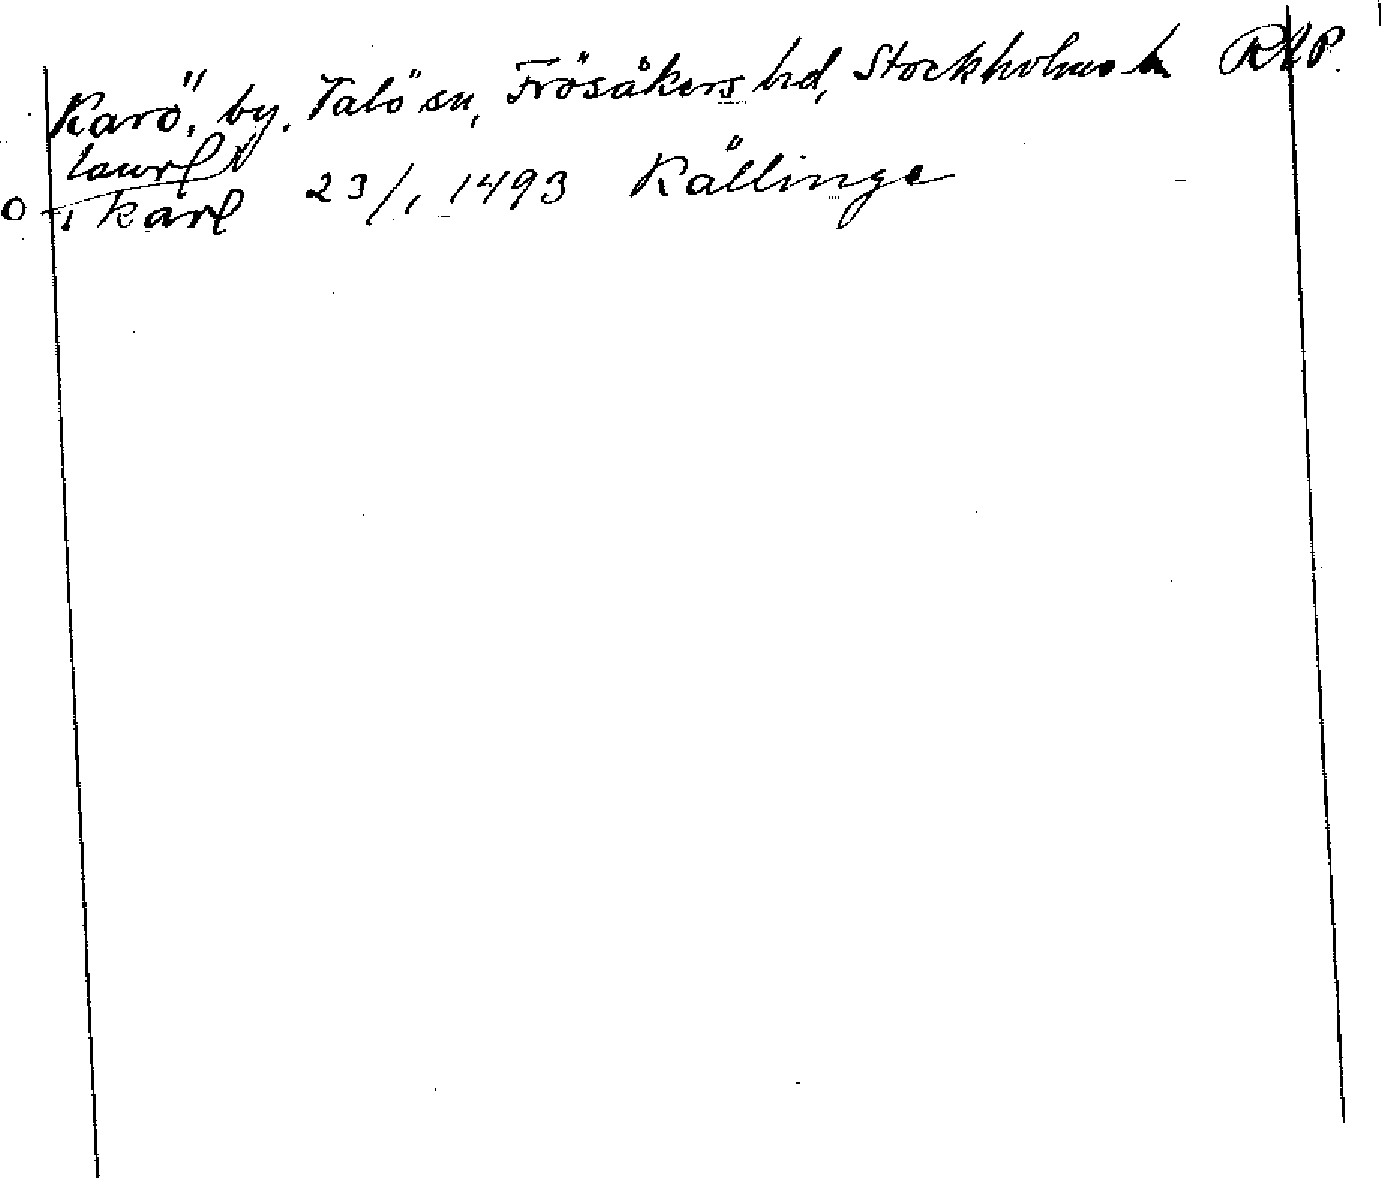 Karö, by. Valö sn, Frösåkers hd, Stockholms ln RAP.
lawrl
i karl 23/1 1493 Källinge